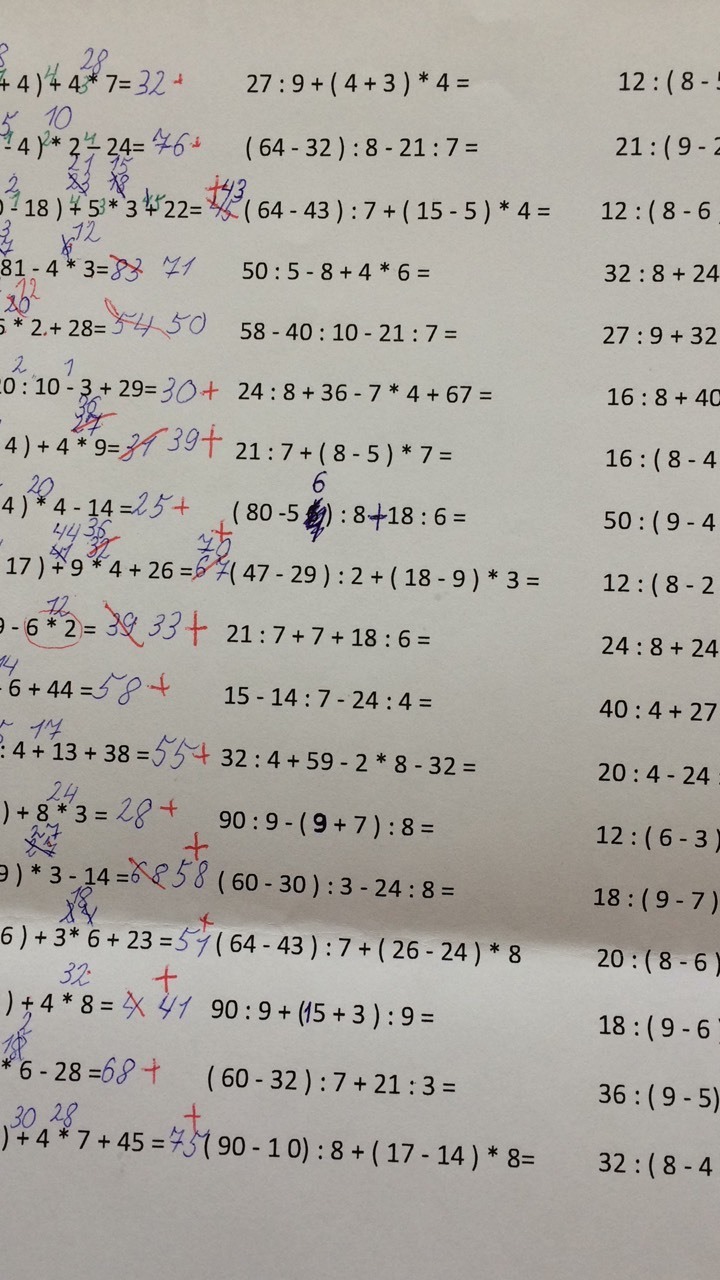 + 4 ) + 4 * 7= 32 + 27 : 9 + ( 4 + 3 ) * 4 = 12 : ( 8 - 5
- 4 ) * 2 - 24= 76 + ( 64 - 32 ) : 8 - 21 : 7 = 21 : ( 9 - 2
- 18 ) + 5 * 3 + 22= 43 ( 64 - 43 ) : 7 + ( 15 - 5 ) * 4 = 12 : ( 8 - 6
81 - 4 * 3= 83 71 50 : 5 - 8 + 4 * 6 = 32 : 8 + 24
* 2 + 28= 54 50 58 - 40 : 10 - 21 : 7 = 27 : 9 + 32
0 : 10 - 3 + 29= 30 + 24 : 8 + 36 - 7 * 4 + 67 = 16 : 8 + 40
4 ) + 4 * 9= 31 39 + 21 : 7 + ( 8 - 5 ) * 7 = 16 : ( 8 - 4
4 ) * 4 - 14 = 25 + ( 80 -5 6 ) : 8 + 18 : 6 = 50 : ( 9 - 4
17 ) + 9 * 4 + 26 = 67 70 + ( 47 - 29 ) : 2 + ( 18 - 9 ) * 3 = 12 : ( 8 - 2
9 - 6 * 2 = 39 33 + 21 : 7 + 7 + 18 : 6 = 24 : 8 + 24
6 + 44 = 58 + 15 - 14 : 7 - 24 : 4 = 40 : 4 + 27
: 4 + 13 + 38 = 55 + 32 : 4 + 59 - 2 * 8 - 32 = 20 : 4 - 24 :
) + 8 * 3 = 28 + 90 : 9 - ( 9 + 7 ) : 8 = 12 : ( 6 - 3 )
9 ) * 3 - 14 = 68 58 + ( 60 - 30 ) : 3 - 24 : 8 = 18 : ( 9 - 7 )
6 ) + 3* 6 + 23 = 51 + ( 64 - 43 ) : 7 + ( 26 - 24 ) * 8 20 : ( 8 - 6 )
) + 4 * 8 = 41 + 90 : 9 + (15 + 3 ) : 9 = 18 : ( 9 - 6
* 6 - 28 = 68 + ( 60 - 32 ) : 7 + 21 : 3 = 36 : ( 9 - 5)
) + 4 * 7 + 45 = 75 + ( 90 - 1 0) : 8 + ( 17 - 14 ) * 8= 32 : ( 8 - 4